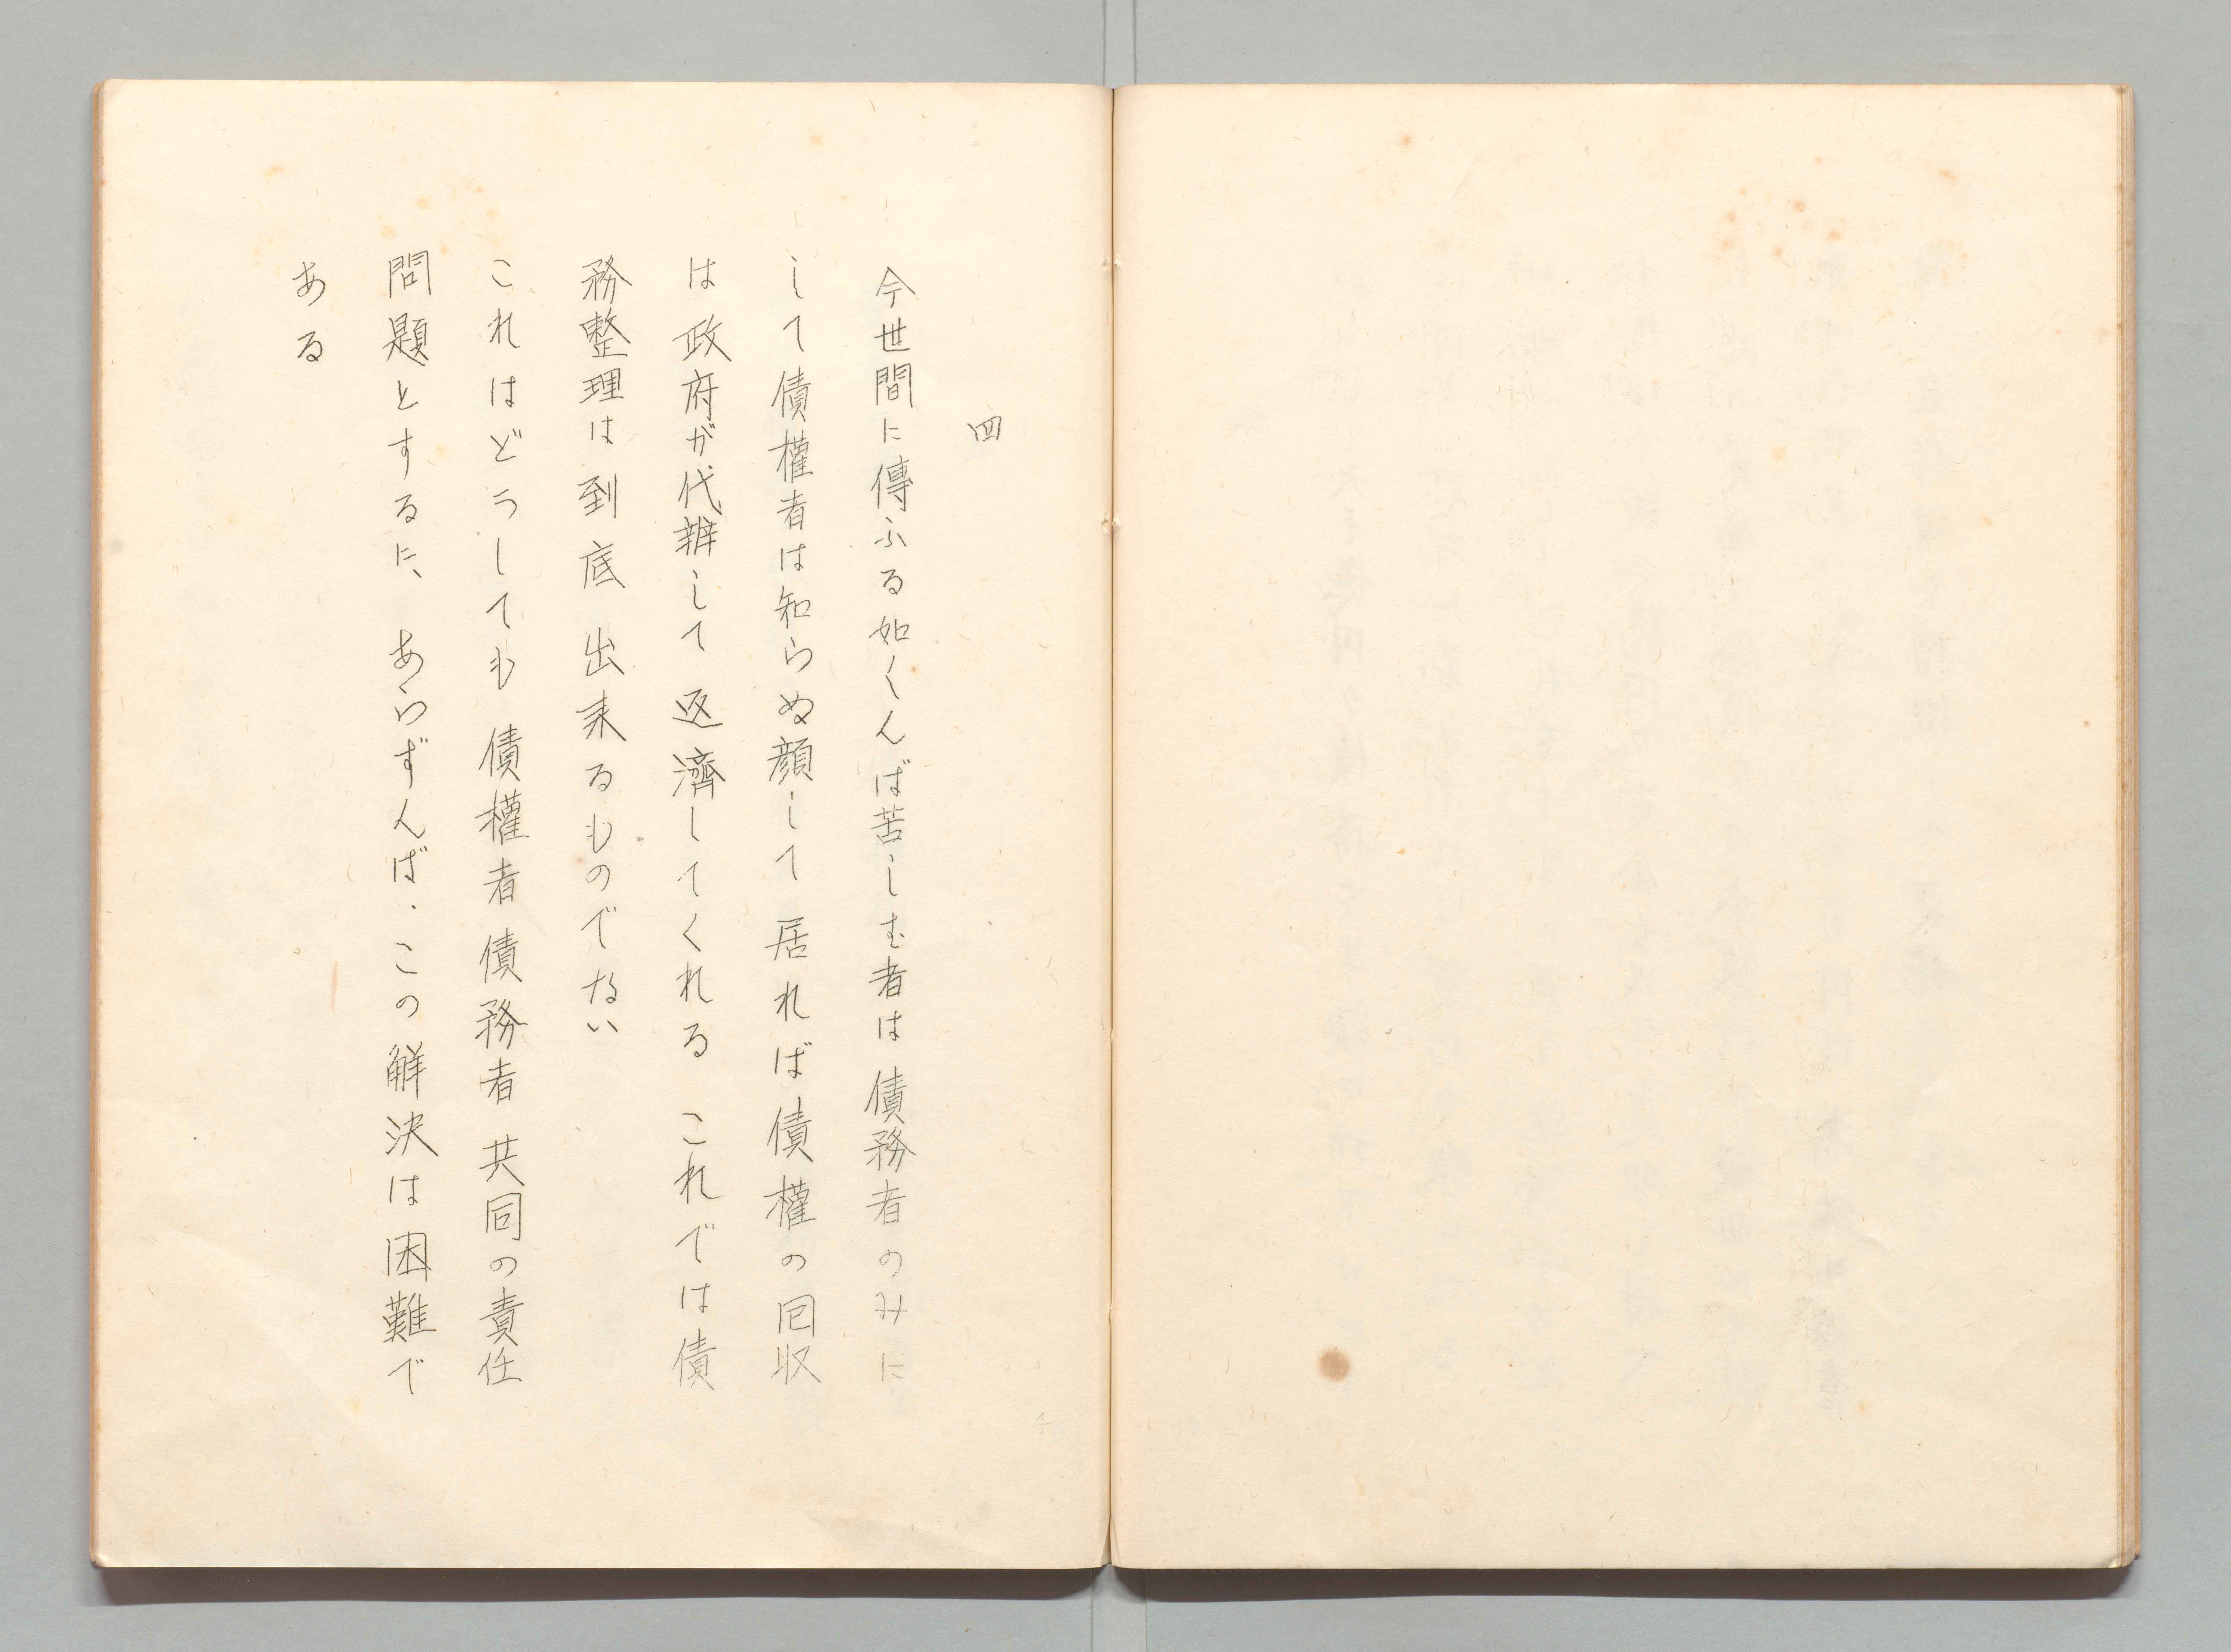 四
今世間に傳ふる如くんば苦しむ者は債務者のみに
して債權者は知らぬ顔して居れば債權の回収
は政府が代辨して返濟してくれる これでは債
務整理は到底出来るものでない
これはどうしても債權者債務者共同の責任
問題とするに、あらずんば、この解決は困難で
ある